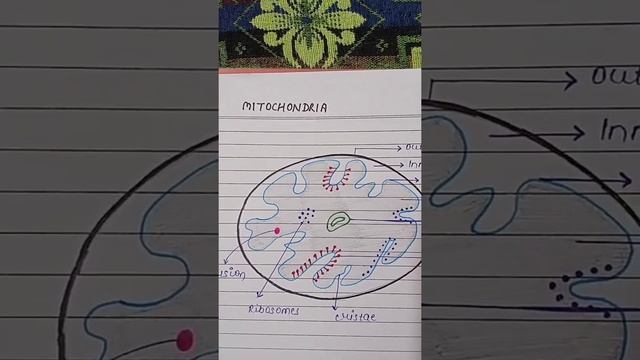 MITOCHONDRIA
Out
Inn
Ribosomes
cristae
Out
Inn